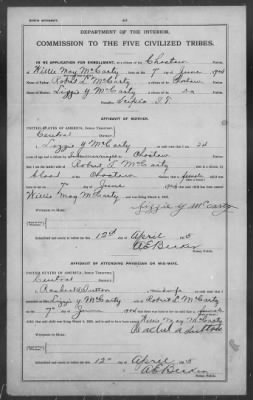 BIRTH AFFIDAVIT.
DEPARTMENT OF THE INTERIOR.
COMMISSION TO THE FIVE CIVILIZED TRIBES.
IN RE APPLICATION FOR ENROLLMENT, as a citizen of the Choctaw Nation,
of Willie May McCarty, born on the 7 day of June, 190
Name of Father: Robert L. McCarty a citizen of the Choctaw Nation.
Name of Mother: Lizzie Y McCarty a citizen of the Nation.
Postoffice Scipio I.T.
AFFIDAVIT OF MOTHER.
UNITED STATES OF AMERICA, Indian Territory,
Central District.
I, Lizzie Y McCarty, on oath state that I am
years of age and a citizen by Intermarriage, of the Choctaw Nation;
that I am the lawful wife of Robert L McCarty, who is a citizen, by
blood of the Choctaw Nation; that a female child was born to me
on 7 day of June, 190
Willie May McCarty
Lizzie Y McCarty
Witnesses to Mark:
Subscribed and sworn to before me this 12th day of April, 1905
Notary Public.
AFFIDAVIT OF ATTENDING PHYSICIAN OR MID-WIFE.
UNITED STATES OF AMERICA, Indian Territory,
Central District.
I, Rachel A Sutton, a midwife, on oath state that I
attended on Mrs. Lizzie Y McCarty, wife of Robert L. McCarty
on the 7 day of June, 190
that said child was living March 4, 1905, and is said to have been named Willie May McCarty
Rachel A Sutton
Witnesses to Mark:
Subscribed and sworn to before me this 12th day of April, 1905
Notary Public.